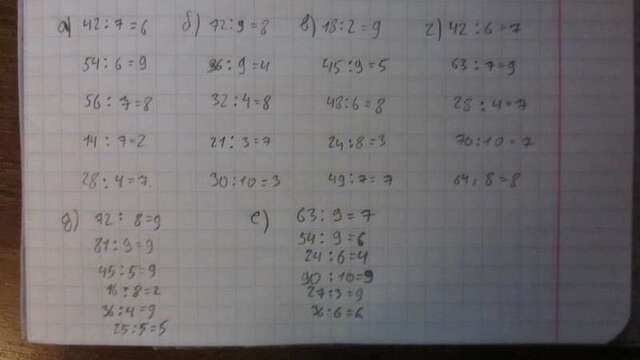 а) 42:7=6 б) 72:9=8 в) 18:2=9 г) 42:6=7
54:6=9 36:9=4 45:9=5 63:7=9
56:7=8 32:4=8 48:6=8 28:4=7
14:7=2 21:3=7 24:8=3 70:10=7
28:4=7 30:10=3 49:7=7 64:8=8
д) 72:8=9 е) 63:9=7
81:9=9 54:9=6
45:5=9 24:6=4
16:8=2 90:10=9
36:4=9 27:3=9
25:5=5 36:6=6